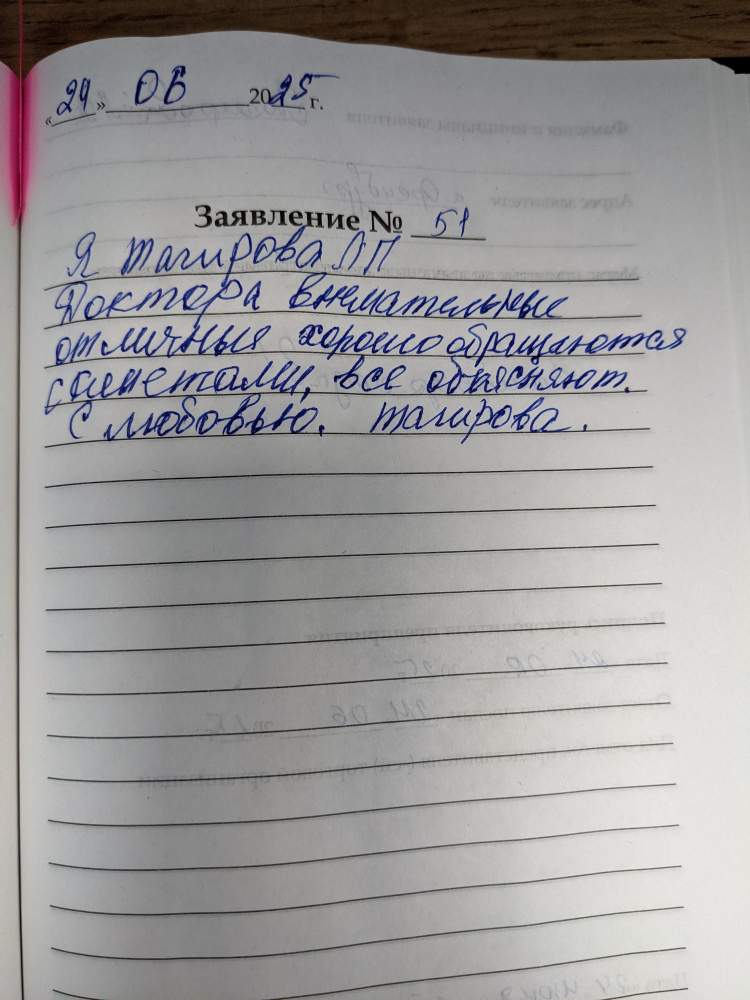 «24» 06 2025 г.
Заявление № 51
Я Тагирова Л П
Доктора внемательные
отличные хорошо обращаются
с понетами, все обьясняют.
С любовью. Тагирова.